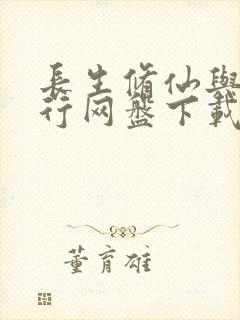 長生脩仙與
行网盘下載
董育雄